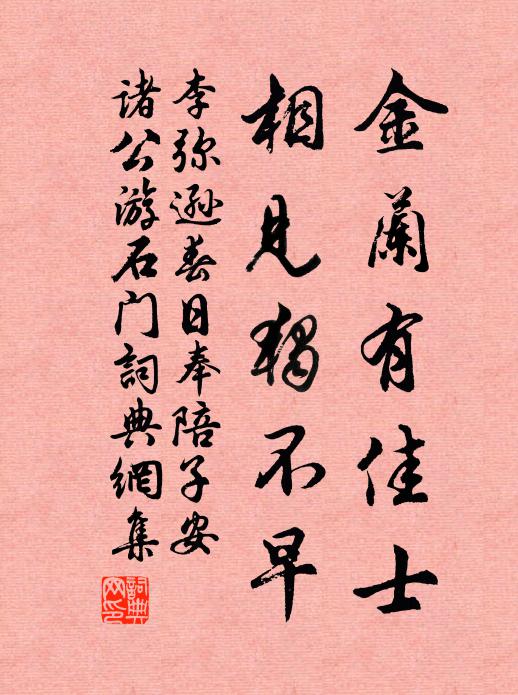 金蘭有佳士
相見獨不早
李弥遜春日奉陪子安
諸公游石门詞典網集
詞典网印